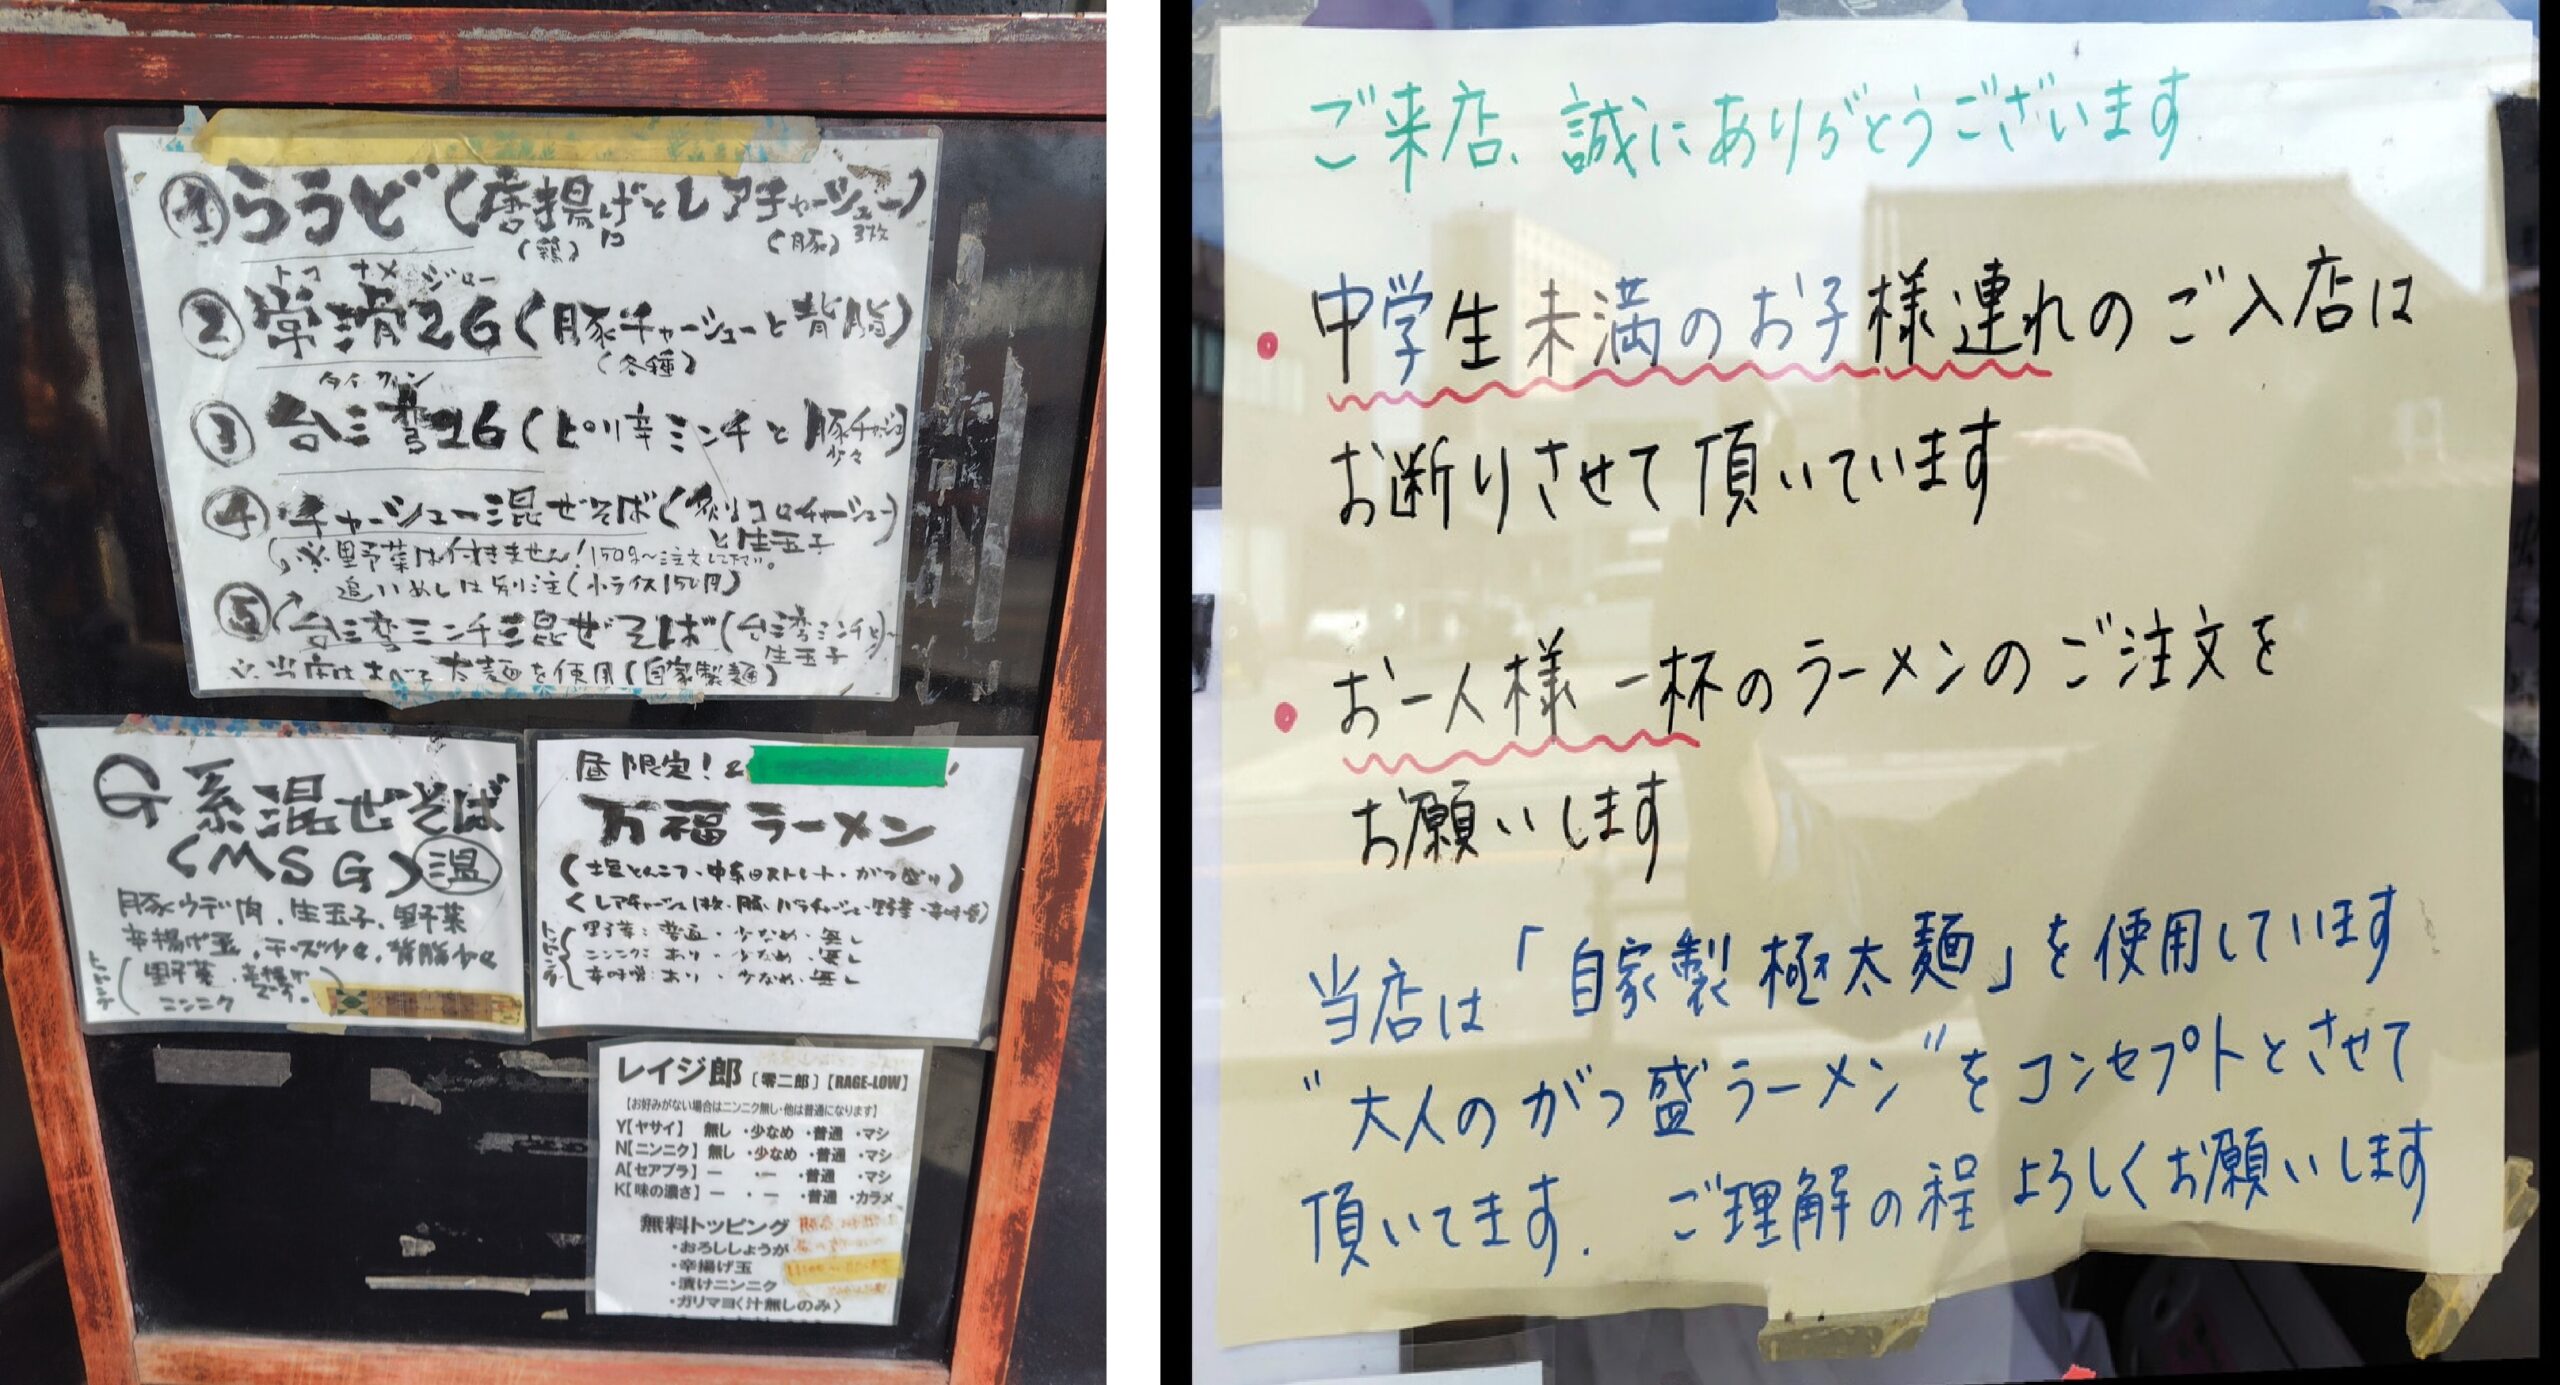 ①らうど(唐揚げとレアチャーシュー)
(鶏) (豚) 3枚
トコナメジロー
②常滑26(豚チャーシューと背脂)
(各種)
タイワン
③台湾26(ピリ辛ミンチと豚チャーシュー
少々
④チャーシュー混ぜそば(炙りコロチャーシュー)
と生玉子
※野菜は付きません!150g〜注文して下さい。
追いめしは別注(小ライス150円)
⑤台湾ミンチ混ぜそば(台湾ミンチと
生玉子
※当店はすべて太麺を使用(自家製麺)
G系混ぜそば
(MSG)温
豚ウデ肉、生玉子、野菜
辛揚げ玉、チーズ少々、背脂少々
野菜、辛揚げ
ニンニク
昼限定!&
万福ラーメン
(塩とんこつ・中太ストレート・がつ盛り)
(レアチャーシュー1枚・豚バラチャーシュー・野菜・辛味噌)
トッピング
野菜:普通・少なめ・無し
ニンニク:あり・少なめ・無し
辛味噌:あり・少なめ・無し
レイジ郎〔零二郎〕【RAGE-LOW】
【お好みがない場合はニンニク無し・他は普通になります】
Y【ヤサイ】 無し ・少なめ ・普通 ・マシ
N【ニンニク】無し ・少なめ ・普通 ・マシ
A【セアブラ】ー ・ー ・普通 ・マシ
K【味の濃さ】ー ・ー ・普通 ・カラメ
無料トッピング
・おろししょうが
・辛揚げ玉
・漬けニンニク
・ガリマヨ〈汁無しのみ〉
ご来店、誠にありがとうございます
・中学生未満のお子様連れのご入店は
お断りさせて頂いています
・お一人様一杯のラーメンのご注文を
お願いします
当店は「自家製極太麺」を使用しています
"大人のがっつ盛ラーメン"をコンセプトとさせて
頂いてます. ご理解の程よろしくお願いします